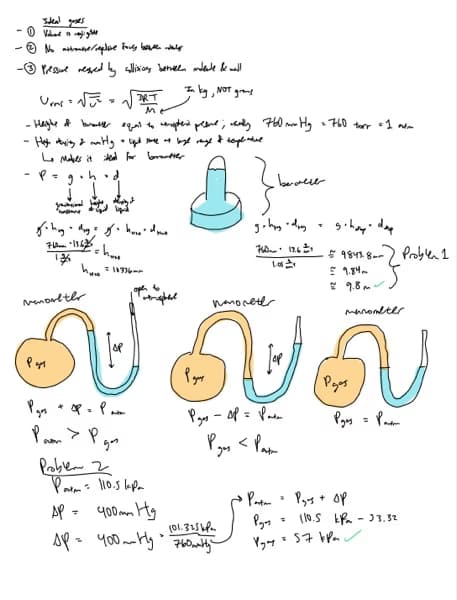 Ideal gases
- ① Volume is negligible
- ② No attractive/repulsive forces between molecules
- ③ Pressure measured by collisions between molecule & wall
Urms = √u² = √3RT/M
In kg, NOT grams
- Height of barometer equal to atmospheric pressure; usually 760 mmHg = 760 torr = 1 atm
- High density of mmHg + liquid state at large range of temperature
↳ Makes it ideal for barometer
- P = g · h · d
gravitational constant
height of liquid
density of liquid
barometer
g · hHg · dHg = g · hH2O · dH2O
760mm · 13.6 / 1 = hH2O
hH2O = 10336mm
g · hHg · dHg = g · h · d
760mm · 13.6 / 1.05 ≅ 9843.8mm
≅ 9.84m
≅ 9.8m ✓
Problem 1
manometer
open to atmosphere
manometer
manometer
ΔP
Pgas
ΔP
Pgas
Pgas
Pgas + ΔP = Patm
Patm > Pgas
Pgas - ΔP = Patm
Pgas < Patm
Pgas = Patm
Problem 2
Patm = 110.5 kPa
ΔP = 400mmHg
ΔP = 400mmHg · 101.325kPa / 760mmHg
Patm = Pgas + ΔP
Pgas = 110.5 kPa - 53.32
Pgas = 57 kPa ✓